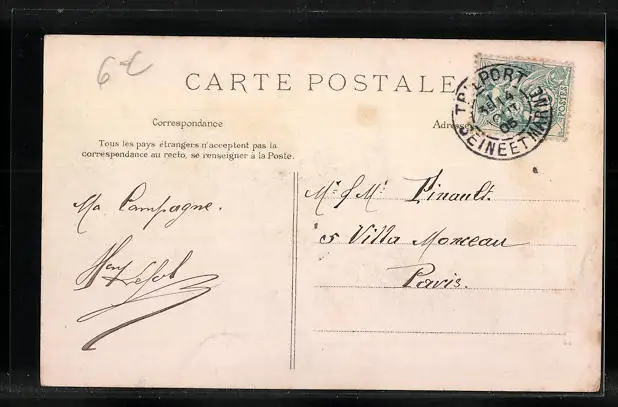 6€
CARTE POSTALE
Correspondance
Tous les pays étrangers n'acceptent pas la
correspondance au recto, se renseigner à la Poste.
Adresse
TRILPORT
OCT
05
SEINE ET MARNE
POSTES
Ma Campagne.
Mr & Me Pinault.
5 Villa Monceau
Paris.